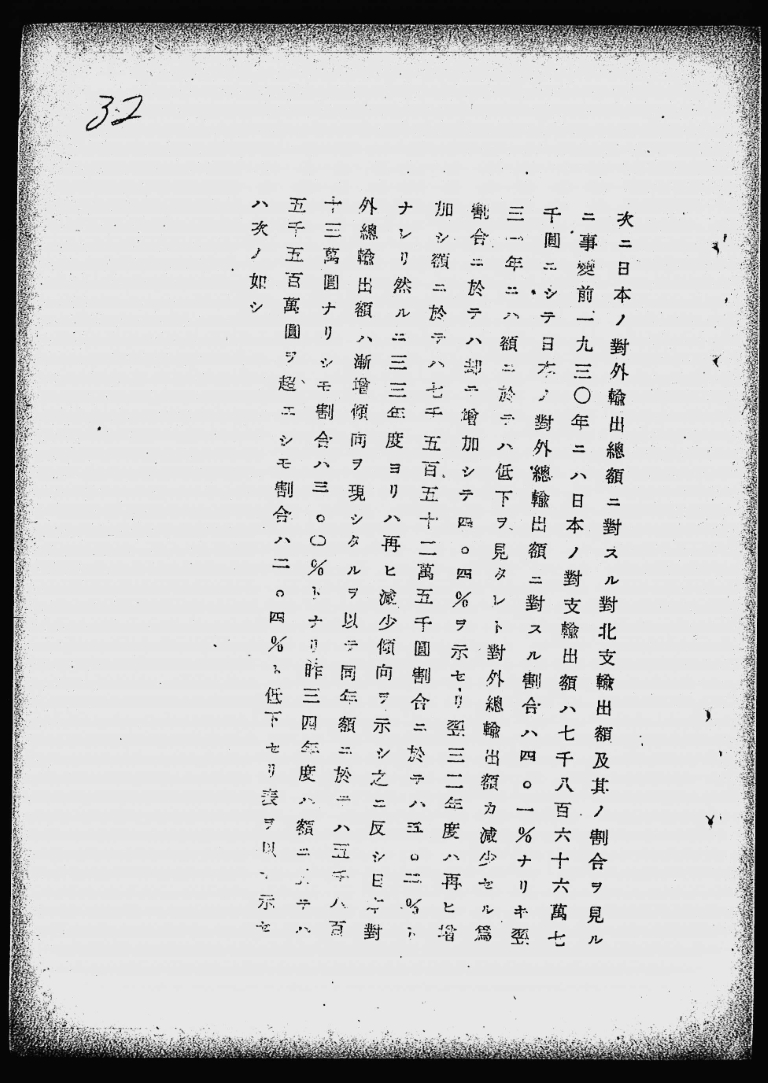 32
次ニ日本ノ對外輸出總額ニ對スル對北支輸出額及其ノ割合ヲ見ル
ニ事變前一九三〇年ニハ日本ノ對支輸出額ハ七千八百六十六萬七
千圓ニシテ日本ノ對外總輸出額ニ對スル割合ハ四。一%ナリキ翌
三一年ニハ額ニ於テハ低下ヲ見タレト對外總輸出額カ減少セル爲
割合ニ於テハ却テ增加シテ四。四%ヲ示セリ翌三二年度ハ再ヒ增
加シ額ニ於テハ七千五百五十二萬五千圓割合ニ於テハ五。二%ト
ナレリ然ルニ三三年度ヨリハ再ヒ減少傾向ヲ示シ之ニ反シ日本對
外總輸出額ハ漸增傾向ヲ現シタルヲ以テ同年額ニ於テハ五千八百
十三萬圓ナリシモ割合ハ三。〇%トナリ昨三四年度ハ額ニ於テハ
五千五百萬圓ヲ超エシモ割合ハ二。四%ト低下セリ表ヲ以テ示セ
ハ次ノ如シ